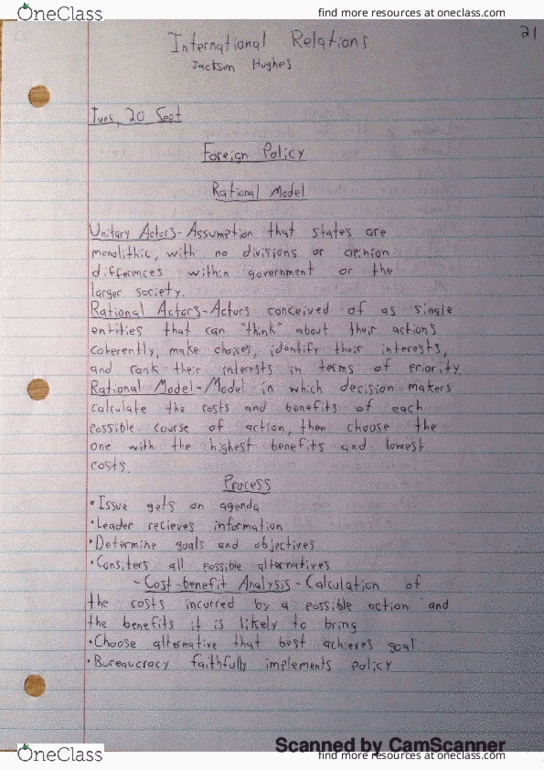 OneClass
find more resources at oneclass.com
21
International Relations
Jackson Hughes
Tues, 20 Sept
Foreign Policy
Rational Model
Unitary Actors-Assumption that states are
monolithic, with no divisions or opinion
differences within government or the
larger society.
Rational Actors-Actors conceived of as single
entities that can "think" about their actions
coherently, make choices, identify their interests,
and rank their interests in terms of priority.
Rational Model-Model in which decision makers
calculate the costs and benefits of each
possible course of action, then choose the
one with the highest benefits and lowest
costs.
Process
•Issue gets on agenda
•Leader recieves information
•Determine goals and objectives
•Consiters all possible alternatives
-Cost-benefit Analysis-Calculation of
the costs incurred by a possible action and
the benefits it is likely to bring
•Choose alternative that best achieves goal
•Bureaucracy faithfully implements policy
Scanned by CamScanner
OneClass
find more resources at oneclass.com